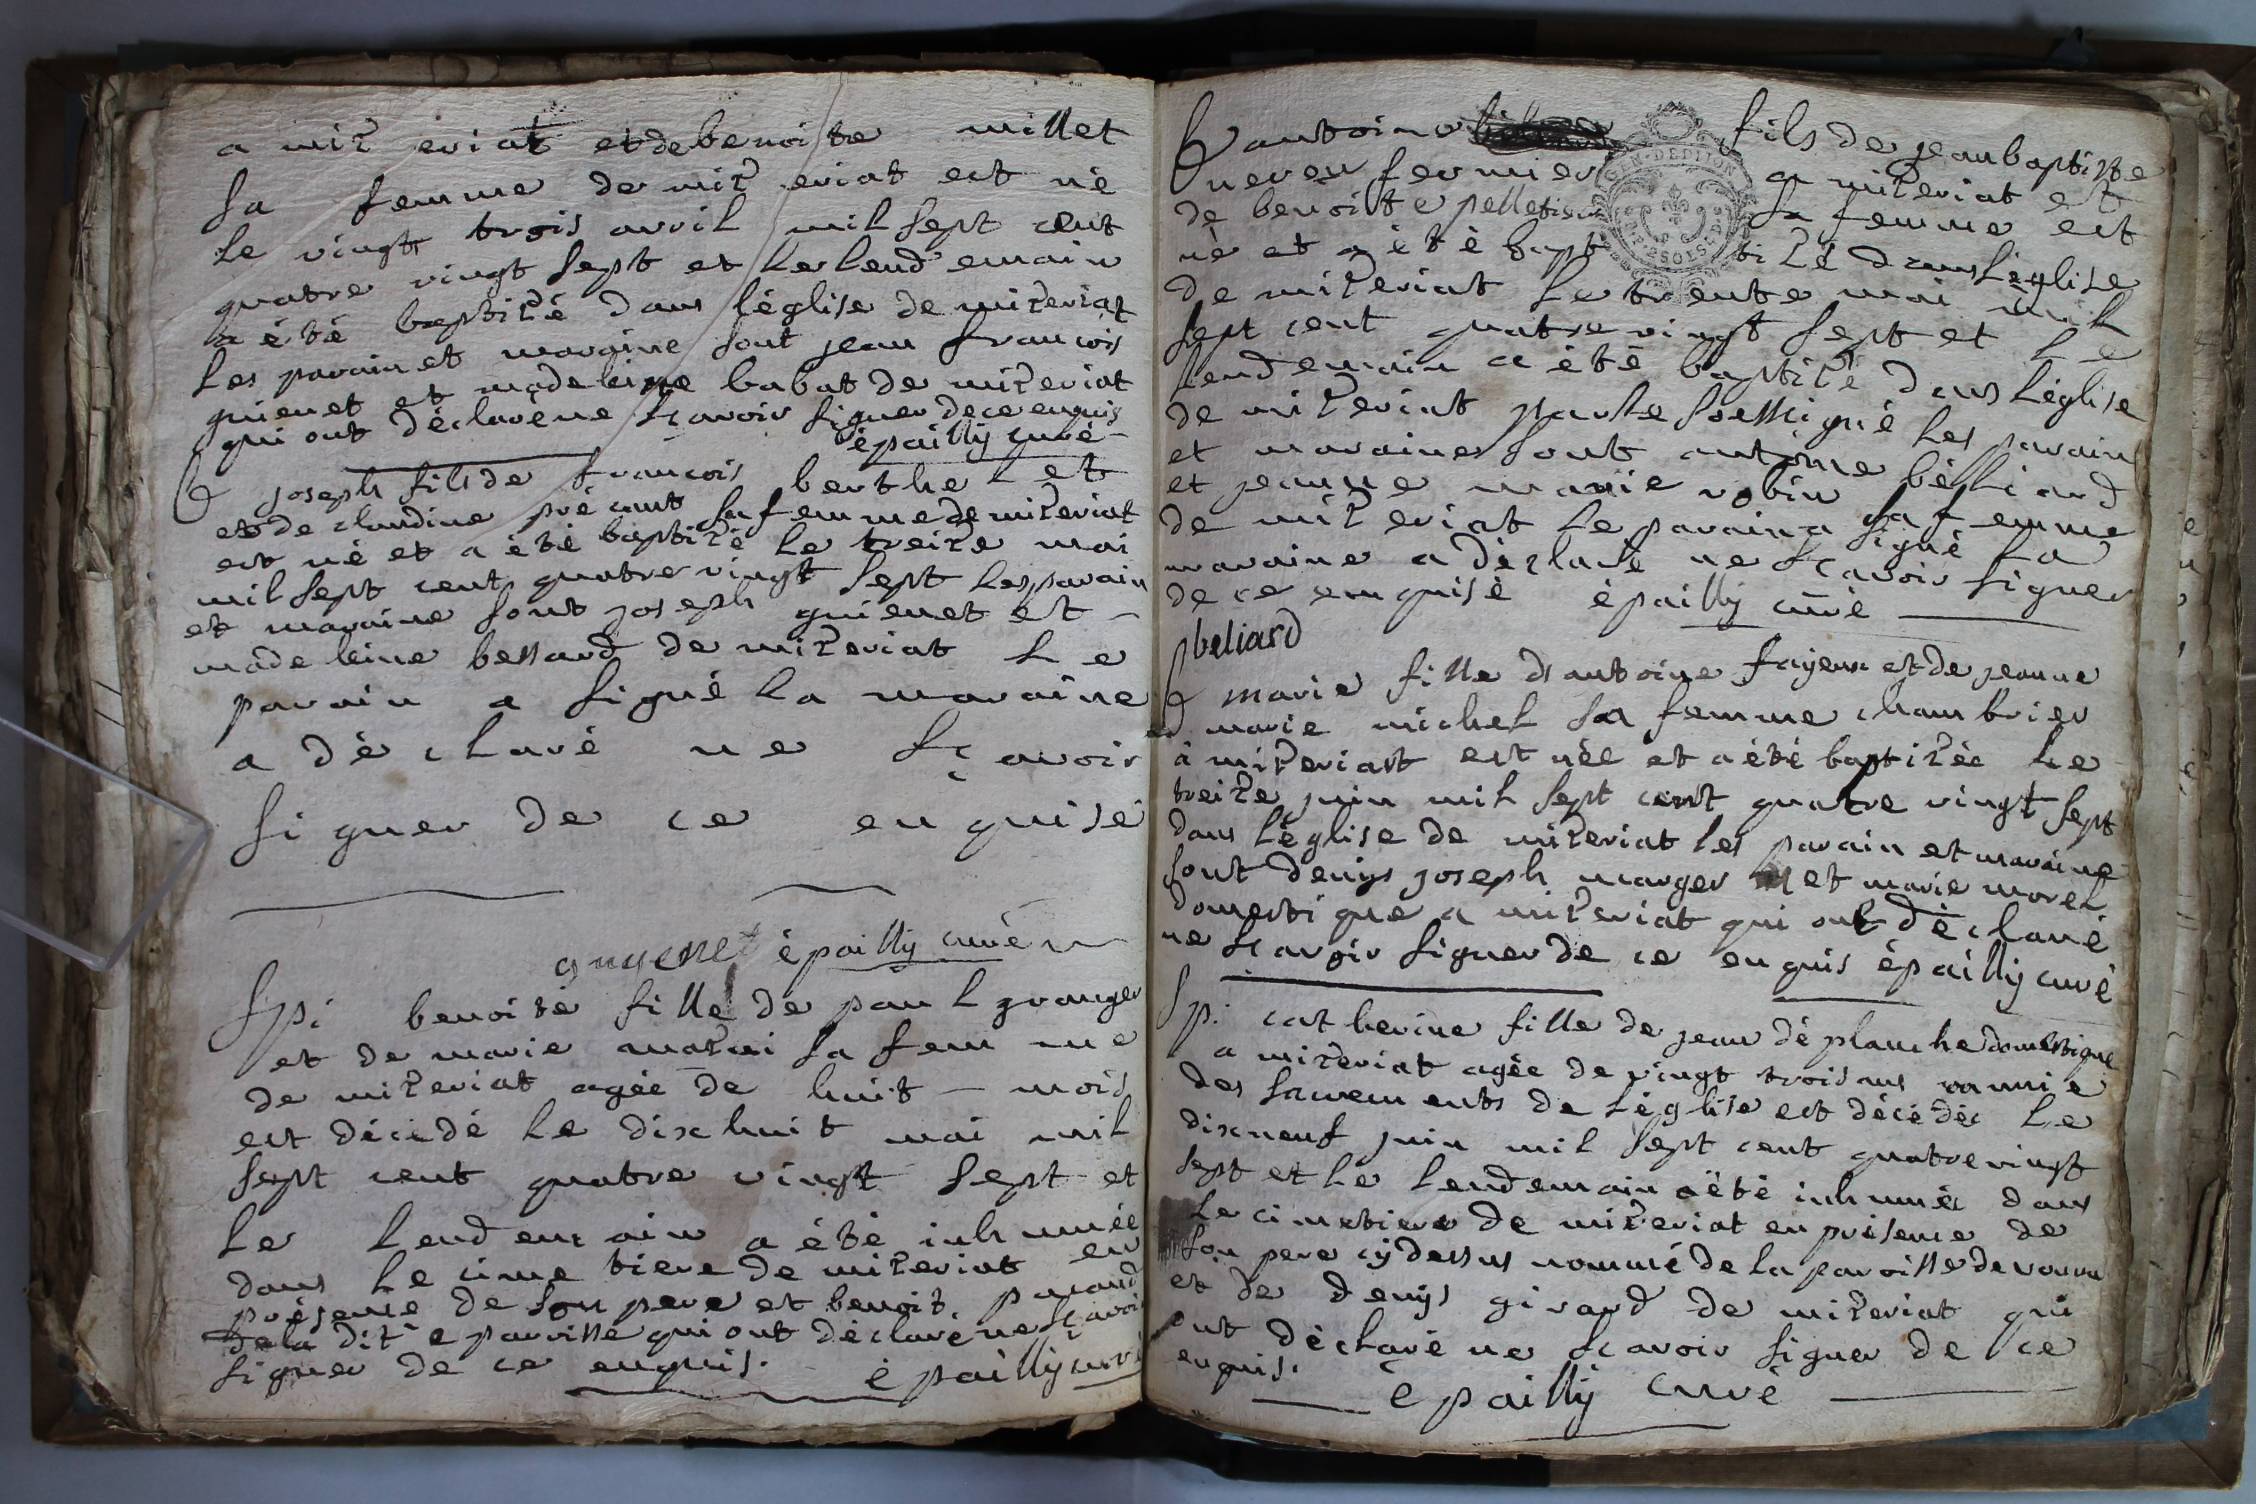 a mizeriat et de benoiste millet
sa femme de mizeriat est né
le vingt trois avril mil sept cent
quatre vingt sept et le lendemain
a été baptizé dans léglise de mizeriat
les parain et maraine sont jean francois
guienet et madeleine babat de mizeriat
qui ont déclaré ne scavoir signer de ce enquis
épailly curé
B joseph fils de francois berthel et
et de claudine précaut sa femme de mizeriat
est né et a été baptizé le treize mai
mil sept cent quatre vingt sept les parain
et maraine sont joseph guienet et
madeleine bessard de mizeriat le
parain a signé la maraine
a déclaré ne scavoir
signer de ce enquisé
guyenet épailly curé
Spi benoite fille de paul granger
et de marie mazui sa femme
de mizeriat agée de huit mois
est décédé le dixhuit mai mil
sept cent quatre vingt sept et
le lendemain a été inhumée
dans le cimetiere de mizeriat en
présence de son pere et benoit
de la dite paroisse qui ont déclaré ne scavoir
signer de ce enquis. épailly curé
B antoine fils de jean baptiste
neveu fermier a mizeriat et
de benoiste pelletier sa femme est
né et a été baptizé dans léglise
de mizeriat le trente mai mil
sept cent quatre vingt sept et le
lendemain a été baptizé dans léglise
de mizeriat par le soussigné les parain
et maraines sont antoine béliard
et jeanne marie robin sa femme
de mizeriat le parain a signé la
maraine a déclaré ne scavoir signer
de ce enquisé épailly curé
beliard
B marie fille d'antoine fayeux et de jeanne
marie michel sa femme chambrier
à mizeriat est née et a été baptizée le
treize juin mil sept cent quatre vingt sept
dans l'église de mizeriat les parain et maraine
sont denys joseph marger et marie morel
domestique a mizeriat qui ont déclaré
ne scavoir signer de ce enquis épailly curé
Sp. catherine fille de jean déplanche domestique
a mizeriat agée de vingt trois ans munie
des sacrements de l'église est décédée le
dixneuf juin mil sept cent quatre vingt
sept et le lendemain a été inhumée dans
le cimetiere de mizeriat en présence de
son pere cy dessus nommé de la paroisse de
et de denys girard de mizeriat qui
ont déclaré ne scavoir signer de ce
enquis.
épailly curé